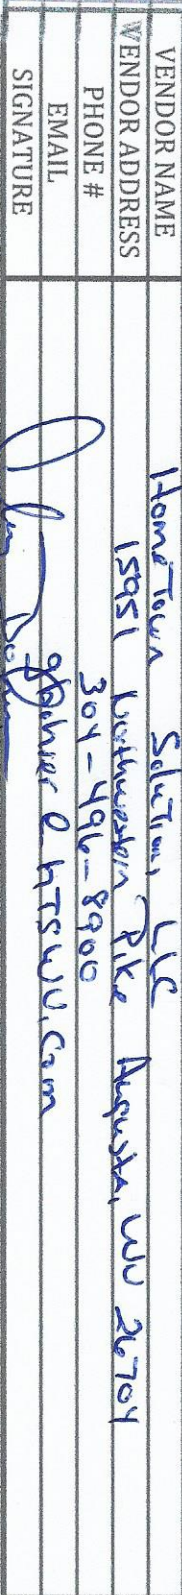 VENDOR NAME HomeTown Solutions, LLC
VENDOR ADDRESS 15951 Northwestern Pike Augusta, WV 26704
PHONE # 304-496-8900
EMAIL @htswv.com
SIGNATURE